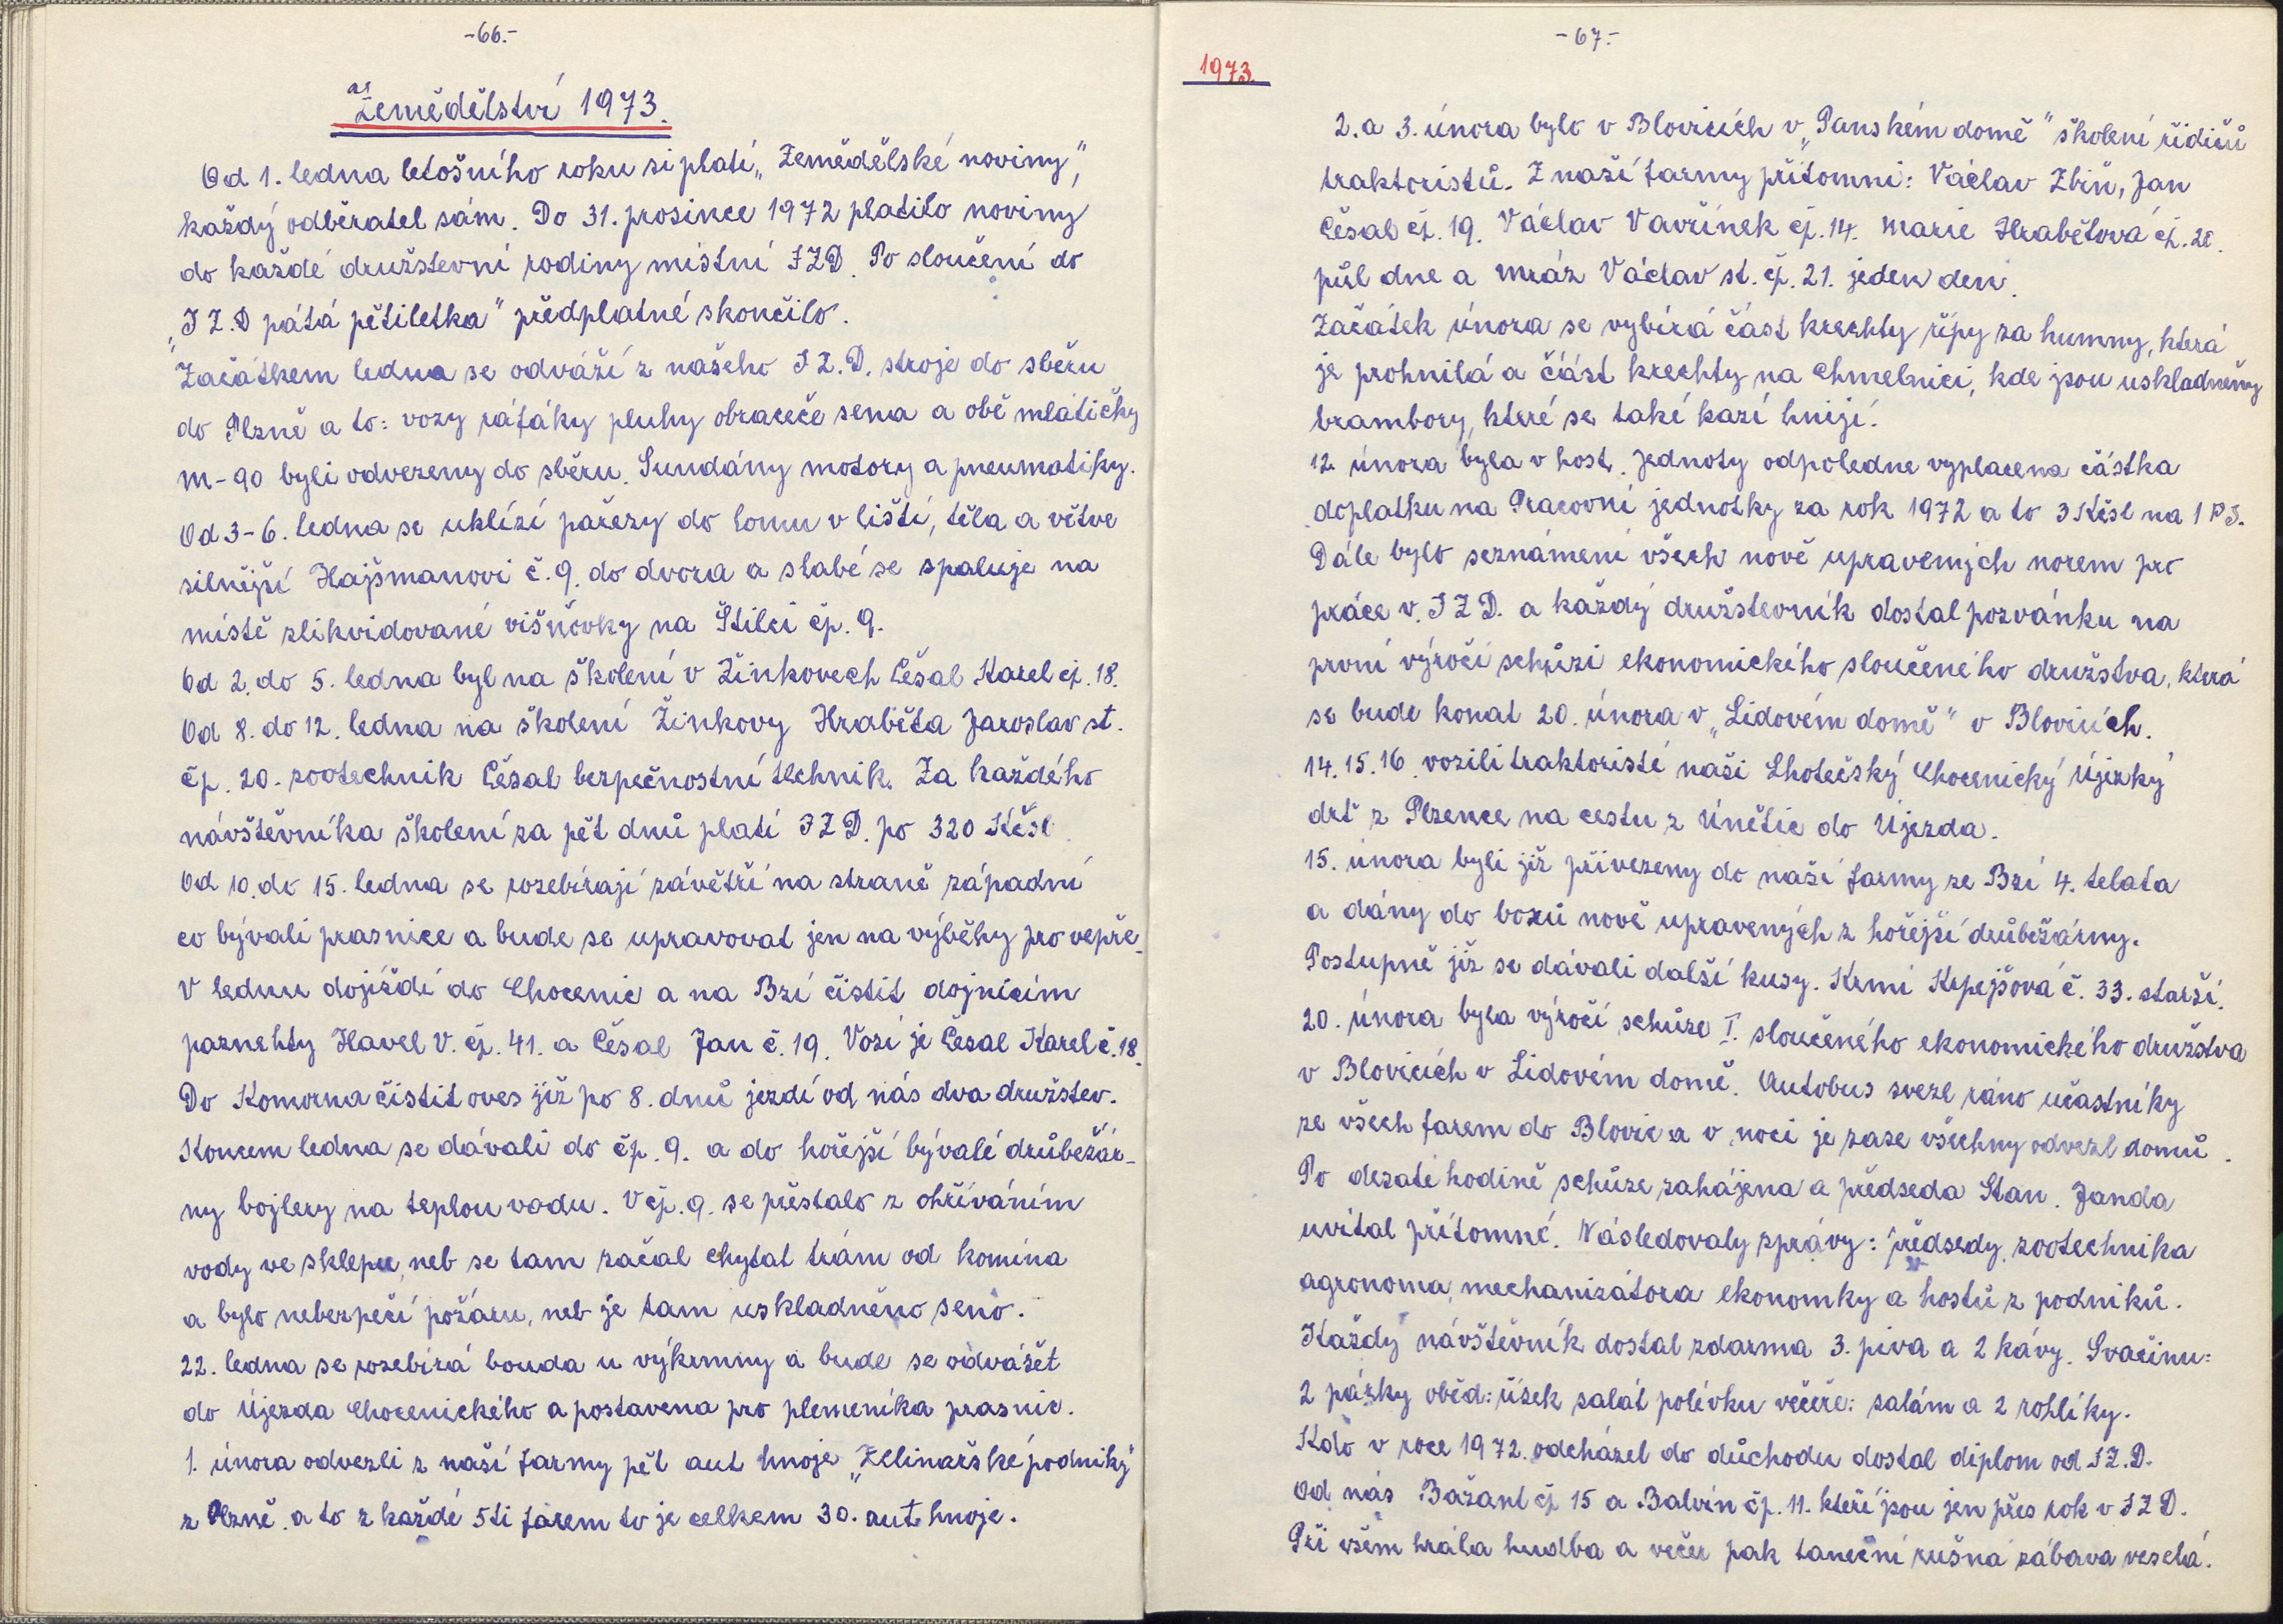 -66.-
Zemědělství 1973.
Od 1. ledna letošního roku si platí „Zemědělské noviny"
každý odběratel sám. Do 31. prosince 1972 platilo noviny
do každé družstevní rodiny místní JZD. Po sloučení do
„JZ.D pátá pětiletka" předplatné skončilo.
Začátkem ledna se odváží z našeho JZ.D. stroje do sběru
do Plzně a to: vozy ráfáky pluhy obraceče sena a obě mlátičky
M-90 byli odvezeny do sběru. Sundány motory a pneumatiky.
Od 3-6. ledna se uklízí pařezy do lomu v lišti, těla a větve
silnější Hajšmanovi č. 9. do dvora a slabé se spaluje na
místě zlikvidované višňovky na Štilci čp. 9.
Od 2. do 5. ledna byl na školení v Žinkovech Češal Karel čp. 18.
Od 8. do 12. ledna na školení Žinkovy Hraběta Jaroslav st.
čp. 20. zootechnik Češal bezpečnostní technik. Za každého
návštěvníka školení za pět dnů platí JZD. po 320 Kčsl
Od 10. do 15. ledna se rozebírají závětří na straně západní
co bývali prasnice a bude se upravovat jen na výběhy pro vepře.
V lednu dojíždí do Chocenic a na Bzí čistit dojnicím
paznehty Havel V. čp. 41. a Češal Jan č. 19. Vozí je Češal Karel č. 18.
Do Komorna čistit oves již po 8. dnů jezdí od nás dva družstev.
Koncem ledna se dávali do čp. 9. a do hořejší bývalé drůbežár-
ny bojlery na teplou vodu. V čp. 9. se přestalo z ohříváním
vody ve sklepu, neb se tam začal chytat trám od komína
a bylo nebezpečí požáru, neb je tam uskladněno seno.
22. ledna se rozebírá bouda u výkrmny a bude se odvážet
do Újezda Chocenického a postavena pro plemeníka prasnic.
1. února odvezli z naší farmy pět aut hnoje „Zelinařské podniky"
z Plzně. a to z každé 5ti farem to je celkem 30. aut hnoje.
-67.-
1973.
2. a 3. února bylo v Blovicích v „Panském domě" školení řidičů
traktoristů. Z naší farmy přítomni: Václav Zbiň, Jan
Češal čp. 19. Václav Vavřínek čp. 14. Marie Hrabětová čp. 20.
půl dne a Mráz Václav st. čp. 21. jeden den.
Začátek února se vybírá část krechty řípy za humny, která
je prohnilá a část krechty na Chmelnici, kde jsou uskladněny
brambory, které se také kazí hnijí.
12. února byla v host. Jednoty odpoledne vyplacena částka
doplatku na Pracovní jednotky za rok 1972 a to 3 Kčsl na 1 PJ.
Dále bylo seznámení všech nově upravených norem pro
práce v. JZD. a každý družstevník dostal pozvánku na
první výročí schůzi ekonomického sloučeného družstva, která
se bude konat 20. února v „Lidovém domě" v Blovicích.
14. 15. 16. vozili traktoristé naši Lhotečský Chocenický Újezký
drť z Plzence na cestu z Únětic do Újezda.
15. února byli již přivezeny do naší farmy ze Bzí 4. telata
a dány do boxů nově upravených z hořejší drůbežárny.
Postupně již se dávali další kusy. Krmí Krpejšová č. 33. starší.
20. února byla výročí schůze I. sloučeného ekonomického družstva
v Blovicích v Lidovém domě. Autobus svezl ráno učastníky
ze všech farem do Blovic a v noci je zase všechny odvezl domů.
Po dezáté hodině schůze zahájena a předseda Stan. Janda
uvítal přítomné. Následovaly zprávy: předsedy, zootechnika
agronoma, mechanizátora ekonomky a hostů z podniků.
Každý návštěvník dostal zdarma 3. piva a 2 kávy. Svačinu:
2 párky oběd: řízek salát polévku večeře: salám a 2 rohlíky.
Kdo v roce 1972. odcházel do důchodu dostal diplom od JZ.D.
Od nás Bažant čp 15 a Balvín čp. 11. kteří jsou jen přes rok v JZD.
Při všem hrála hudba a večer pak taneční rušná zábava veselá.